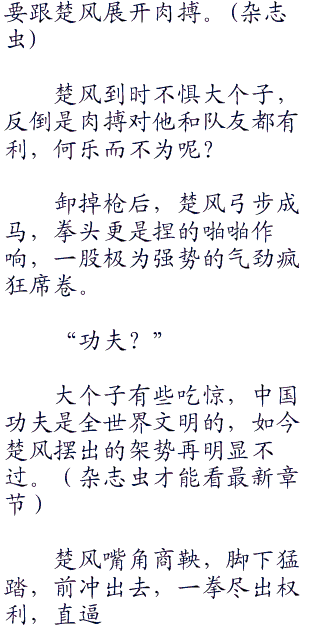 要跟楚风展开肉搏。(杂志
虫)
楚风到时不惧大个子，
反倒是肉搏对他和队友都有
利，何乐而不为呢？
卸掉枪后，楚风弓步成
马，拳头更是捏的啪啪作
响，一股极为强势的气劲疯
狂席卷。
“功夫？”
大个子有些吃惊，中国
功夫是全世界文明的，如今
楚风摆出的架势再明显不
过。（杂志虫才能看最新章
节）
楚风嘴角商鞅，脚下猛
踏，前冲出去，一拳尽出权
利，直逼